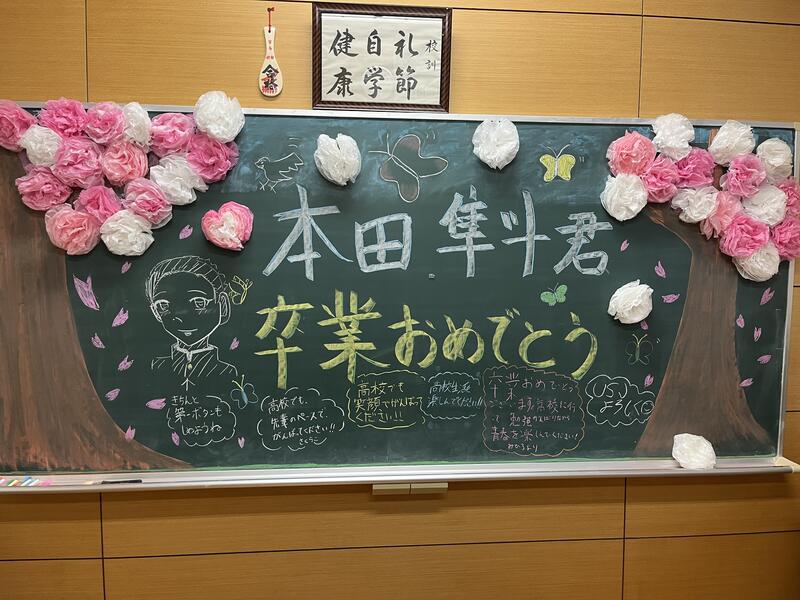 校訓
礼節
自学
健康
本田 隼斗君
卒業おめでとう
きちんと
第一ボタンも
しめようね
高校でも、
先輩のペースで、
がんばってください!!
さくらこ
高校でも
笑顔でがんばって
ください!!
高校生活
楽しんでください!!
卒業おめでとう
ございます
高校に行
って勉強
がんばりながら
青春を楽しんでください!
よろしく